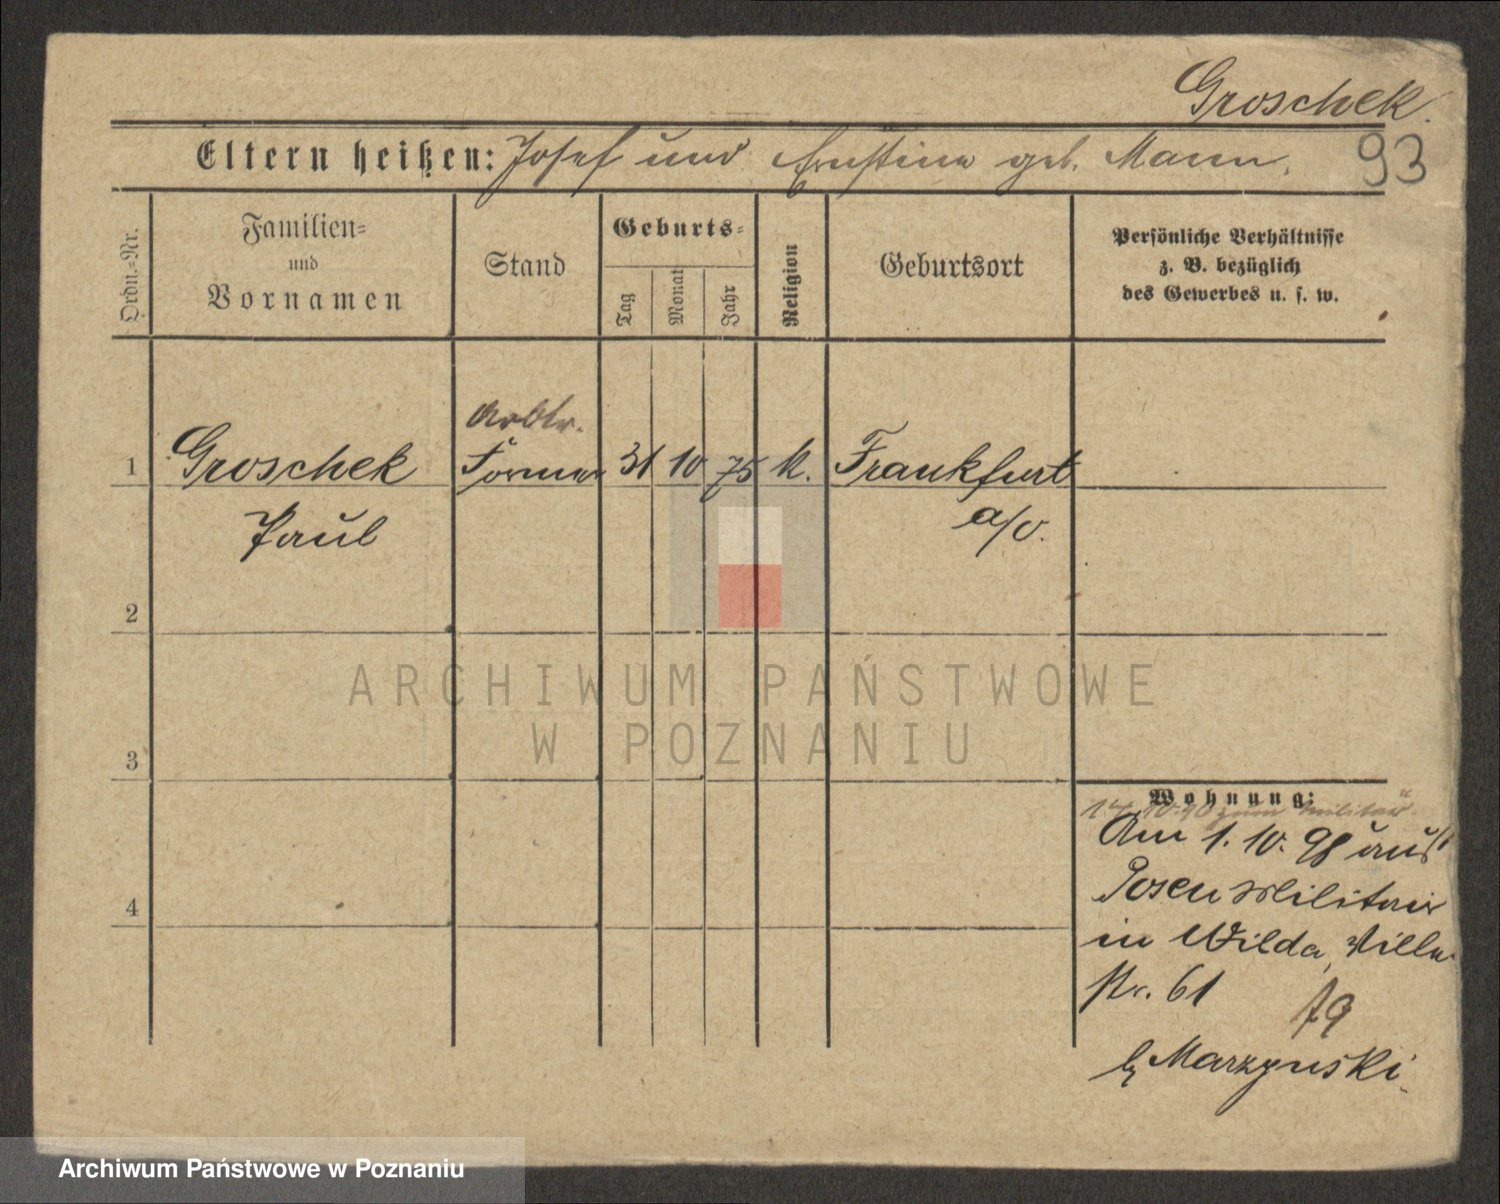 Groschek.
Eltern heißen: Josef und Ernstine geb. Mann.
93
Ordn.-Nr.
Familien-
und
Vornamen
Stand
Geburts-
Tag
Monat
Jahr
Religion
Geburtsort
Persönliche Verhältnisse
z. B. bezüglich
des Gewerbes u. s. w.
Arbtr.
1 Groschek Former 31 10 75 k. Frankfurt
Paul a/O.
2
3
4
Wohnung:
14.10.90 zum Militär
Am 1. 10. 98 aus
Posen Militair
in Wilda,
str. 61
b/ Marzynski.
ARCHIWUM PAŃSTWOWE
W POZNANIU
Archiwum Państwowe w Poznaniu